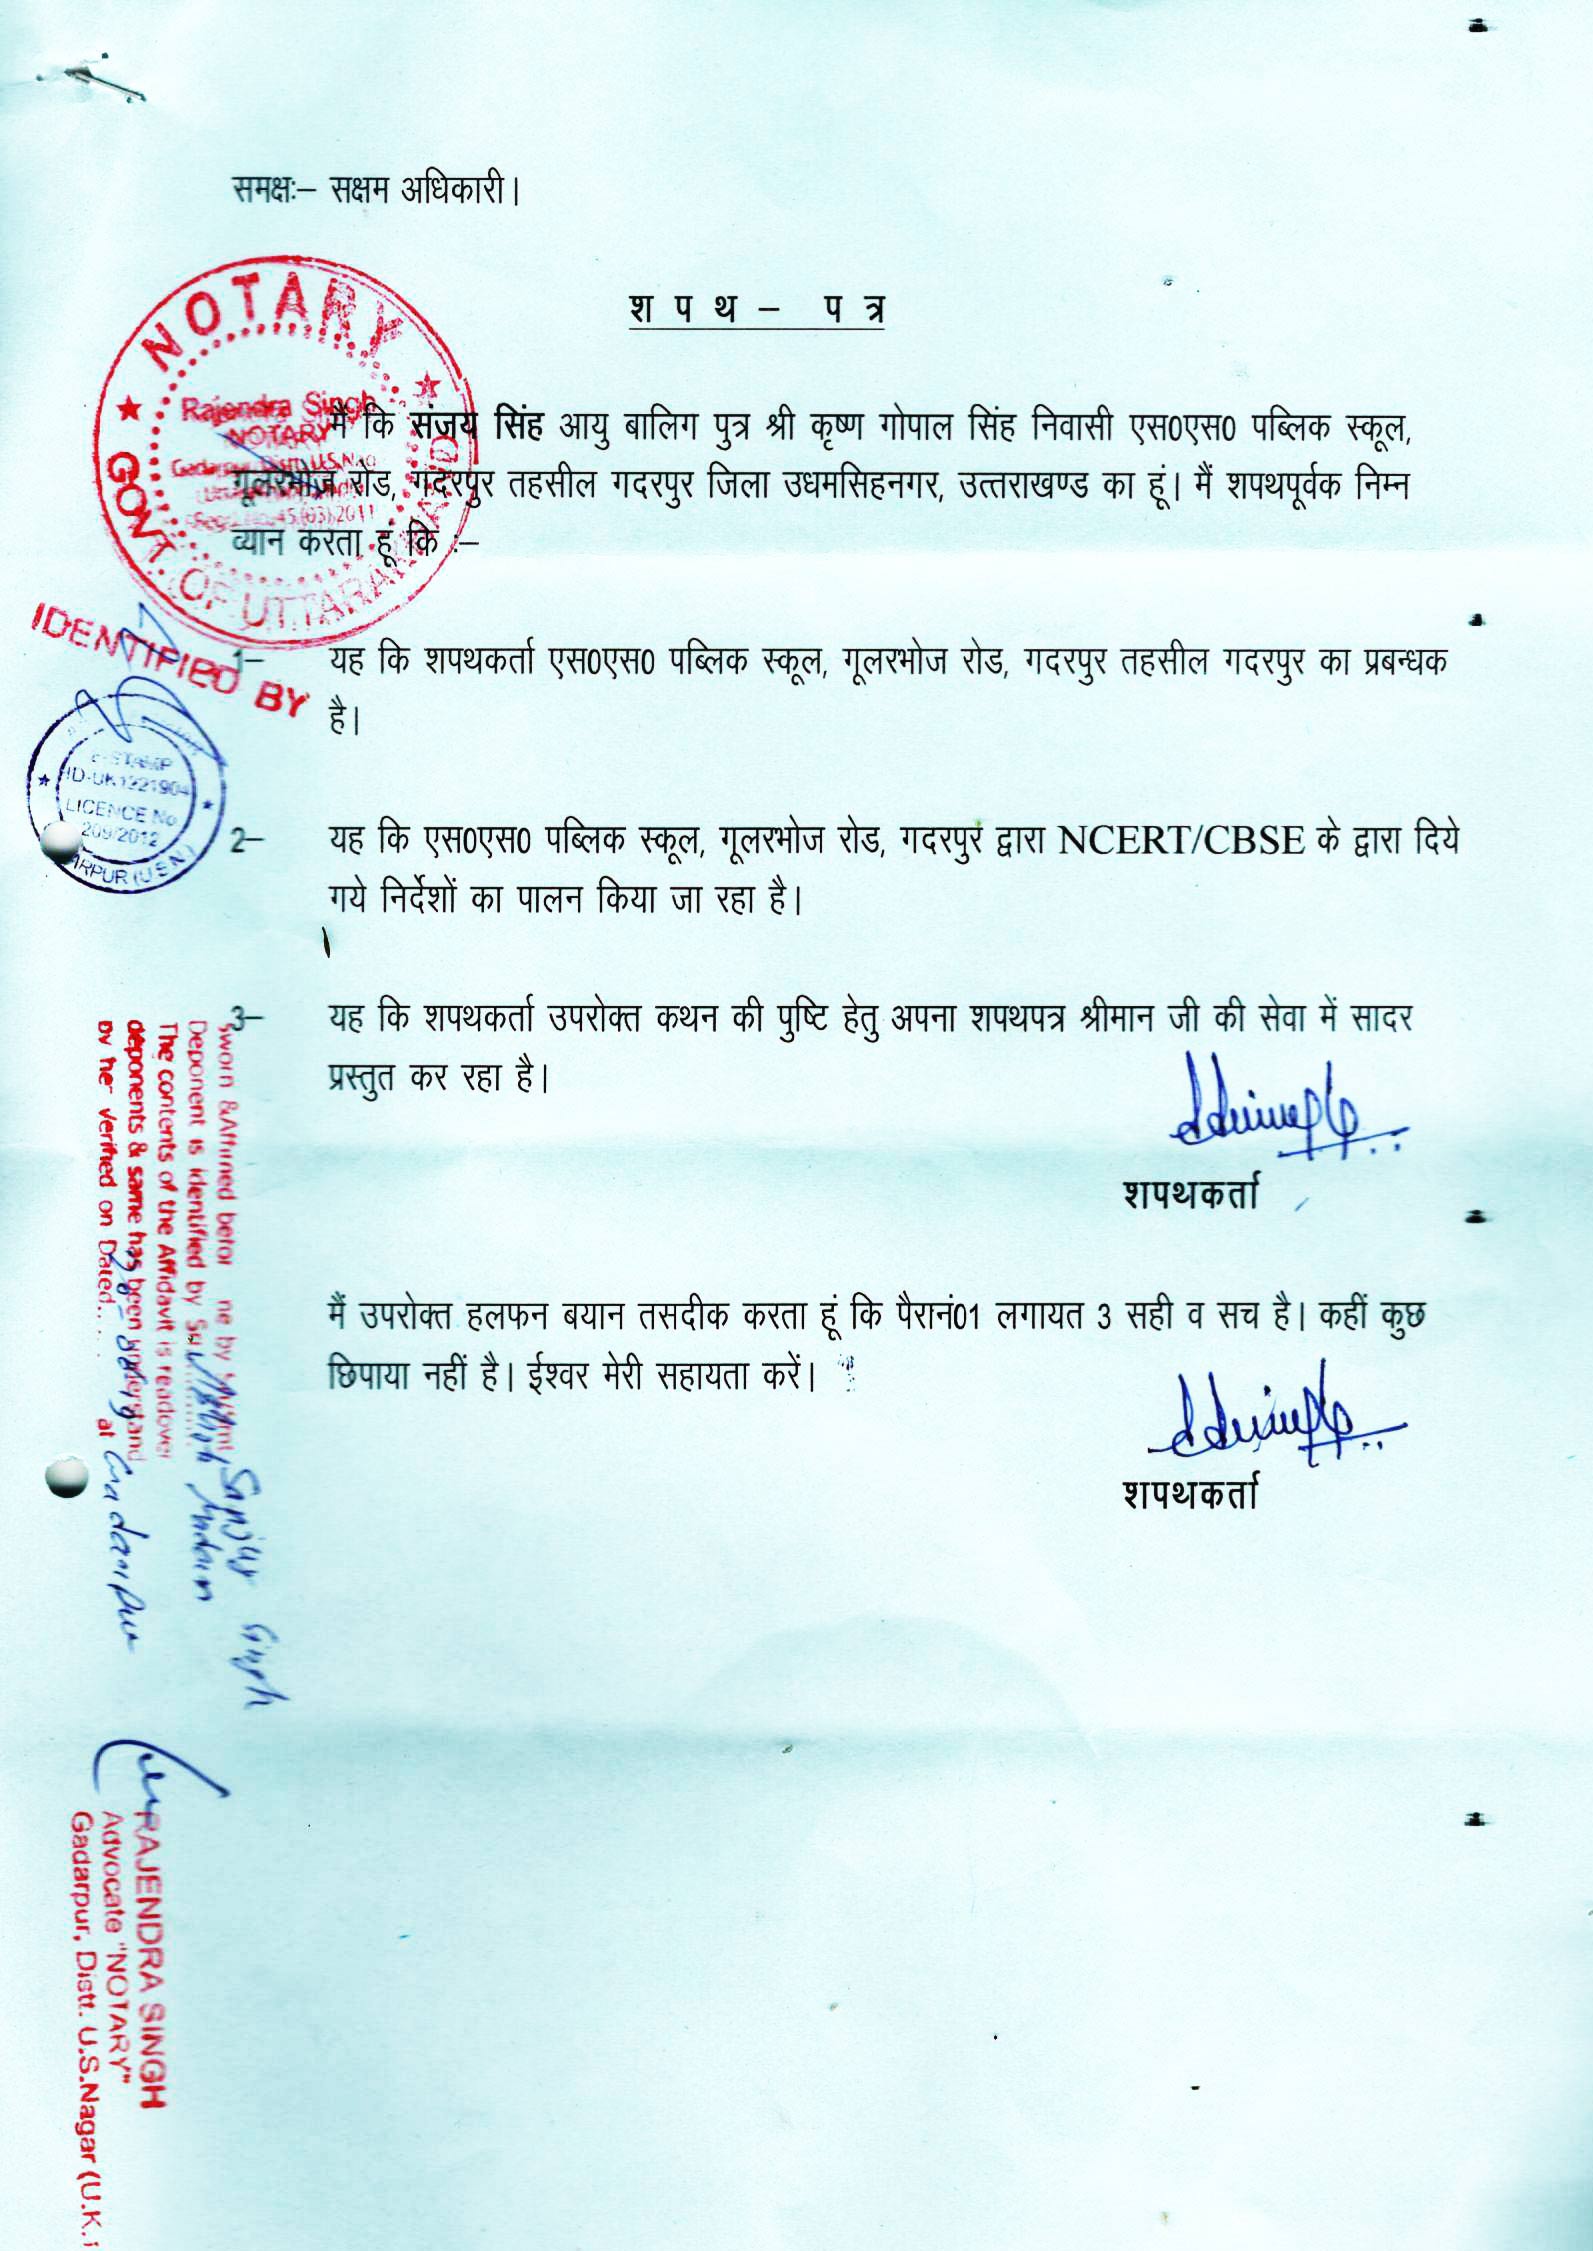 समक्षः– सक्षम अधिकारी।
श प थ – प त्र
NOTARY
GOVT. OF UTTARAKHAND
Rajendra Singh
NOTARY
मैं कि संजय सिंह आयु बालिग पुत्र श्री कृष्ण गोपाल सिंह निवासी एस0एस0 पब्लिक स्कूल,
गूलरभोज रोड, गदरपुर तहसील गदरपुर जिला उधमसिहनगर, उत्तराखण्ड का हूं। मैं शपथपूर्वक निम्न
व्यान करता हूं कि :–
IDENTIFIED BY
1– यह कि शपथकर्ता एस0एस0 पब्लिक स्कूल, गूलरभोज रोड, गदरपुर तहसील गदरपुर का प्रबन्धक
है।
e-STAMP
ID-UK1221904
LICENCE No.
209/2012
ARPUR (U.S.N.)
2– यह कि एस0एस0 पब्लिक स्कूल, गूलरभोज रोड, गदरपुर द्वारा NCERT/CBSE के द्वारा दिये
गये निर्देशों का पालन किया जा रहा है।
3– यह कि शपथकर्ता उपरोक्त कथन की पुष्टि हेतु अपना शपथपत्र श्रीमान जी की सेवा में सादर
प्रस्तुत कर रहा है।
शपथकर्ता
मैं उपरोक्त हलफन बयान तसदीक करता हूं कि पैरानं01 लगायत 3 सही व सच है। कहीं कुछ
छिपाया नहीं है। ईश्वर मेरी सहायता करें।
शपथकर्ता
Sworn &Affirmed befor me by Sanjay Singh
Deponent is identified by
The contents of the Affidavit is readover
deponents & same has been understand
by her verified on Dated.... at Gadarpur
RAJENDRA SINGH
Advocate "NOTARY"
Gadarpur, Distt. U.S.Nagar (U.K.)